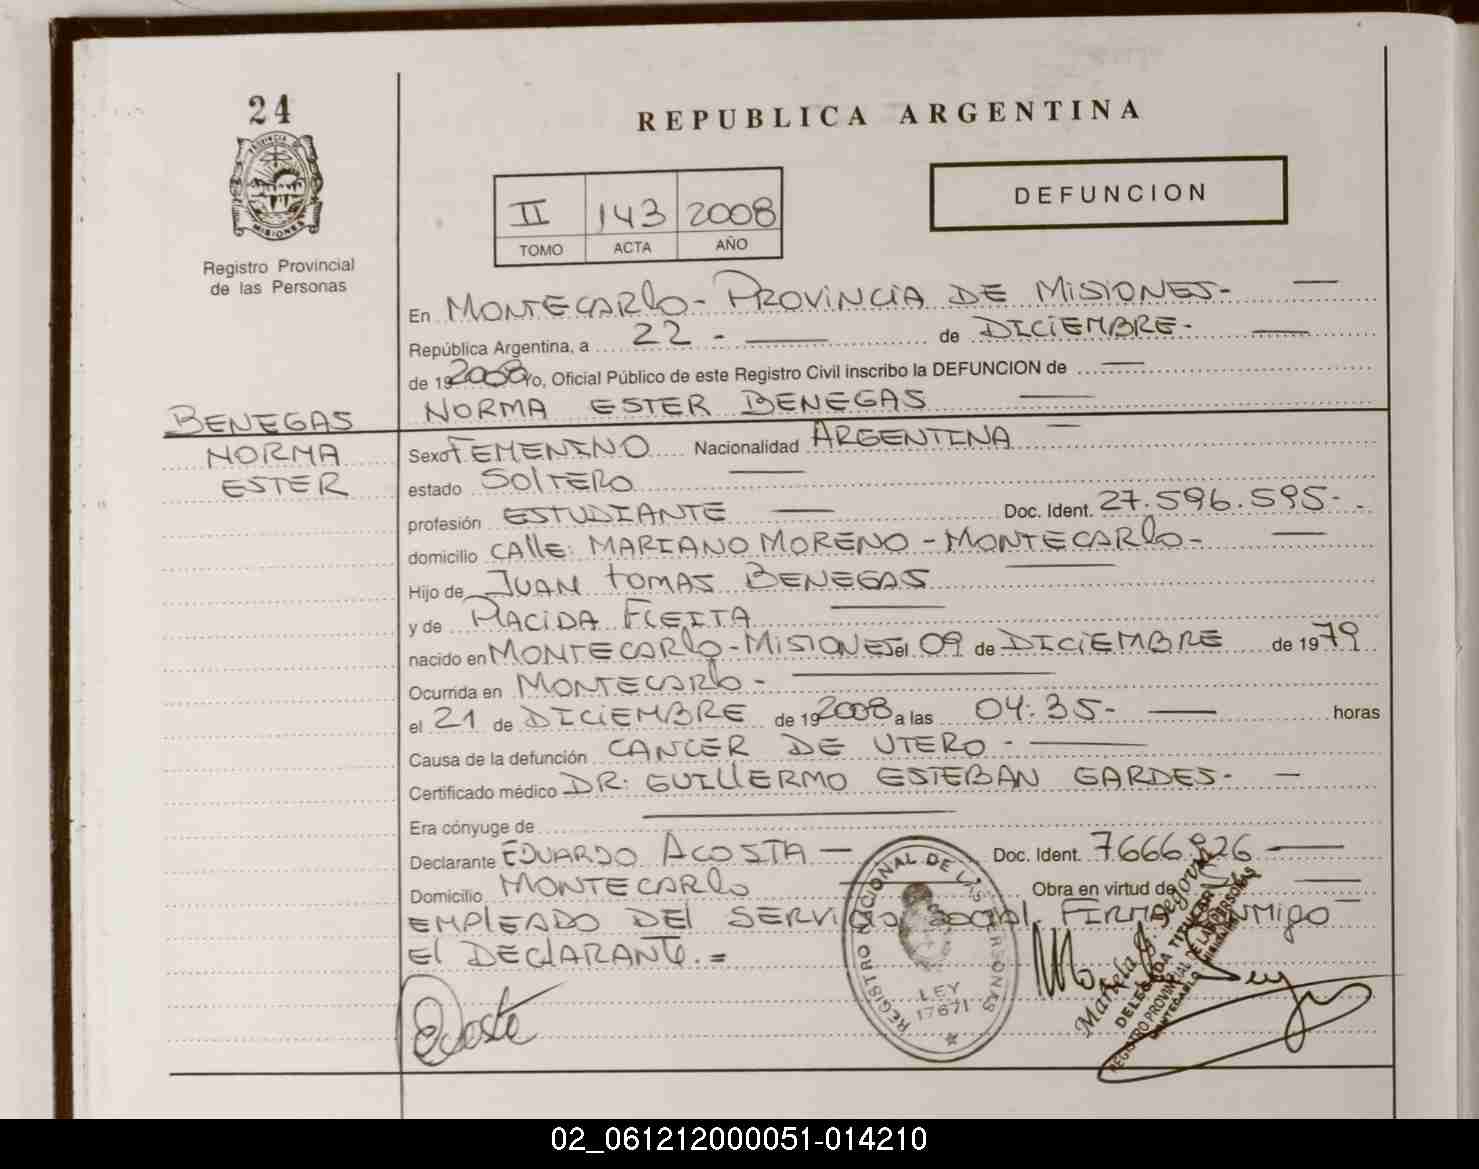 24
PROVINCIA DE
MISIONES
Registro Provincial
de las Personas
REPUBLICA ARGENTINA
II 143 2008
TOMO ACTA AÑO
DEFUNCION
En MONTECARLO - PROVINCIA DE MISIONES -
República Argentina, a 22 - de DICIEMBRE -
de 192008 Yo, Oficial Público de este Registro Civil inscribo la DEFUNCION de
BENEGAS NORMA ESTER BENEGAS
NORMA Sexo FEMENINO Nacionalidad ARGENTINA
ESTER estado SOLTERO
profesión ESTUDIANTE Doc. Ident. 27.596.595 -
domicilio CALLE: MARIANO MORENO - MONTECARLO -
Hijo de JUAN TOMAS BENEGAS
y de PLACIDA FLEITA
nacido en MONTECARLO - MISIONES el 09 de DICIEMBRE de 1979
Ocurrida en MONTECARLO -
el 21 de DICIEMBRE de 192008 a las 04:35 - horas
Causa de la defunción CANCER DE UTERO -
Certificado médico DR: GUILLERMO ESTEBAN GARDES -
Era cónyuge de
Declarante EDUARDO ACOSTA Doc. Ident. 7666826
Domicilio MONTECARLO Obra en virtud de
EMPLEADO DEL SERVICIO SOCIAL. FIRMA CONMIGO
EL DECLARANTE. =
REGISTRO NACIONAL DE LAS PERSONAS
LEY
17671
Mariela G. Segovia
DELEGADA TITULAR
REGISTRO PROVINCIAL DE LAS PERSONAS
MONTECARLO MISIONES
02_061212000051-014210